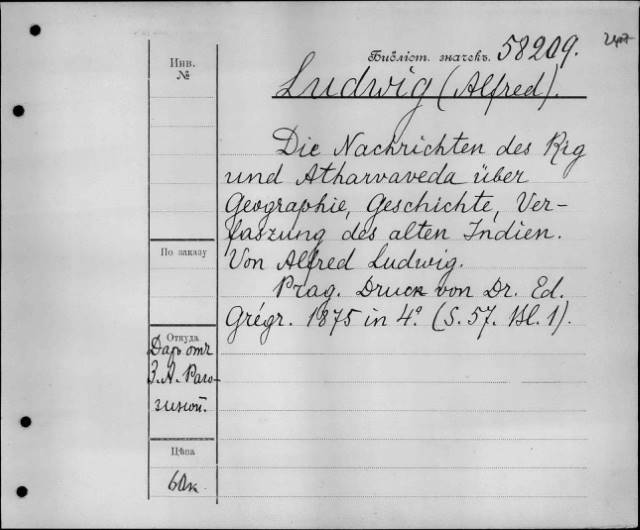 Библіот. значекъ. 58209.
Инв.
№
Ludwig (Alfred).
Die Nachrichten des Rig
und Atharvaveda über
Geographie, Geschichte, Ver-
faszung des alten Indien.
Von Alfred Ludwig.
Prag. Druck von Dr. Ed.
Grégr. 1875 in 4º. (S. 57. Bl. 1).
По заказу
Откуда
Даръ отъ
З. А. Раго-
зиной.
Цѣна
60к